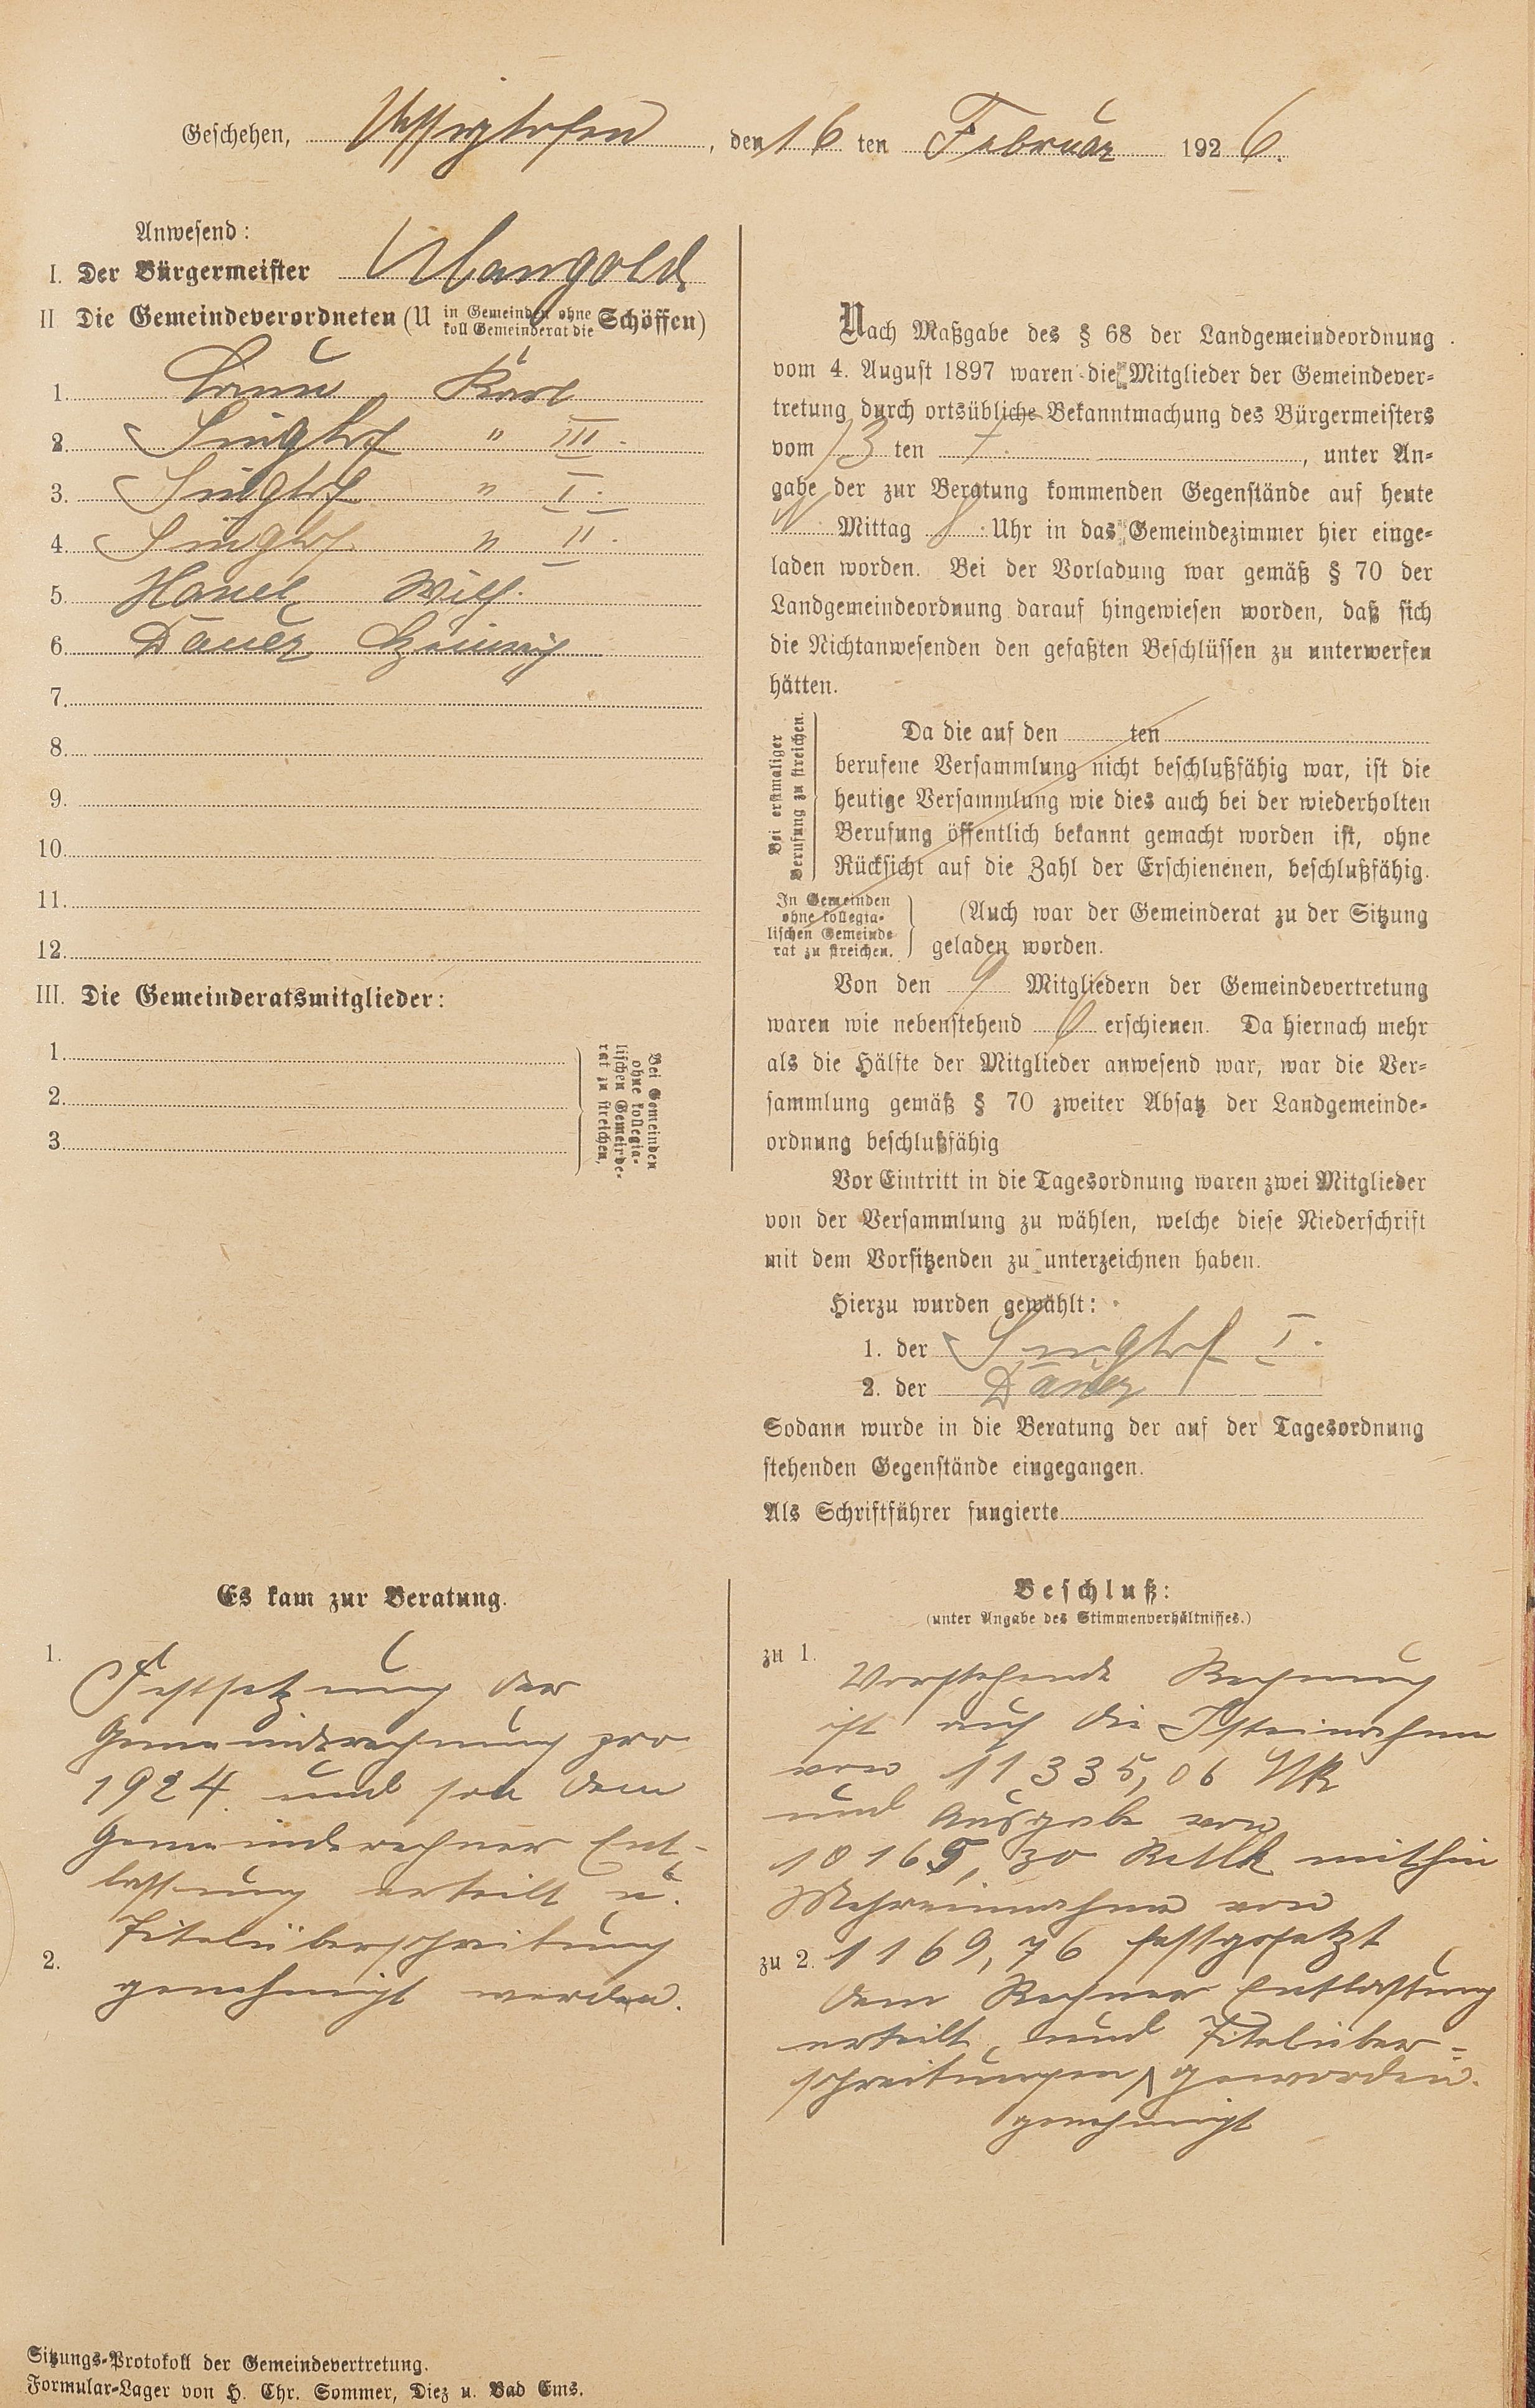 Geschehen, Kessighofen, den 16 ten Februar 1926.
Anwesend:
I. Der Bürgermeister Mangold
II Die Gemeindeverordneten (U in Gemeinden ohne koll Gemeinderat die Schöffen)
1. Karl
2. Singhof " III.
3. Singhof " I.
4. Singhof " II.
5. Wilh.
6. Dauer Heinrich
7.
8.
9.
10.
11.
12.
III. Die Gemeinderatsmitglieder:
1.
2.
3.
Bei Gemeinden
ohne kollegia-
lischen Gemeinde-
rat zu streichen.
Nach Maßgabe des § 68 der Landgemeindeordnung
vom 4. August 1897 waren die Mitglieder der Gemeindever-
tretung durch ortsübliche Bekanntmachung des Bürgermeisters
vom 13 ten , unter An-
gabe der zur Beratung kommenden Gegenstände auf heute
N. Mittag 8 Uhr in das Gemeindezimmer hier einge-
laden worden. Bei der Vorladung war gemäß § 70 der
Landgemeindeordnung darauf hingewiesen worden, daß sich
die Nichtanwesenden den gefaßten Beschlüssen zu unterwerfen
hätten.
Bei erstmaliger
Berufung zu streichen.
Da die auf den ten
berufene Versammlung nicht beschlußfähig war, ist die
heutige Versammlung wie dies auch bei der wiederholten
Berufung öffentlich bekannt gemacht worden ist, ohne
Rücksicht auf die Zahl der Erschienenen, beschlußfähig.
In Gemeinden
ohne kollegia-
lischen Gemeinde
rat zu streichen.
(Auch war der Gemeinderat zu der Sitzung
geladen worden.
Von den 9 Mitgliedern der Gemeindevertretung
waren wie nebenstehend 6 erschienen. Da hiernach mehr
als die Hälfte der Mitglieder anwesend war, war die Ver-
sammlung gemäß § 70 zweiter Absatz der Landgemeinde-
ordnung beschlußfähig
Vor Eintritt in die Tagesordnung waren zwei Mitglieder
von der Versammlung zu wählen, welche diese Niederschrift
mit dem Vorsitzenden zu unterzeichnen haben.
Hierzu wurden gewählt:
1. der Singhof I.
2. der Dauer
Sodann wurde in die Beratung der auf der Tagesordnung
stehenden Gegenstände eingegangen.
Als Schriftführer fungierte
Es kam zur Beratung.
1.
Festsetzung der
Gemeinderechnung pro
1924 und soll dem
Gemeinderechner Ent-
lassung erteilt u.
Titelüberschreitung
2.
genehmigt werden.
Beschluß:
(unter Angabe des Stimmenverhältnisses.)
zu 1.
Vorstehende Rechnung
ist auf die Isteinnahme
von 11 335,06 Mk
und Ausgabe von
10165,30 RMk mithin
Mehreinnahme von
zu 2. 1169,76 festgesetzt
dem Rechner Entlastung
erteilt und Titelüber-
schreitungen geworden.
genehmigt
Sitzungs-Protokoll der Gemeindevertretung.
Formular-Lager von H. Chr. Sommer, Diez u. Bad Ems.